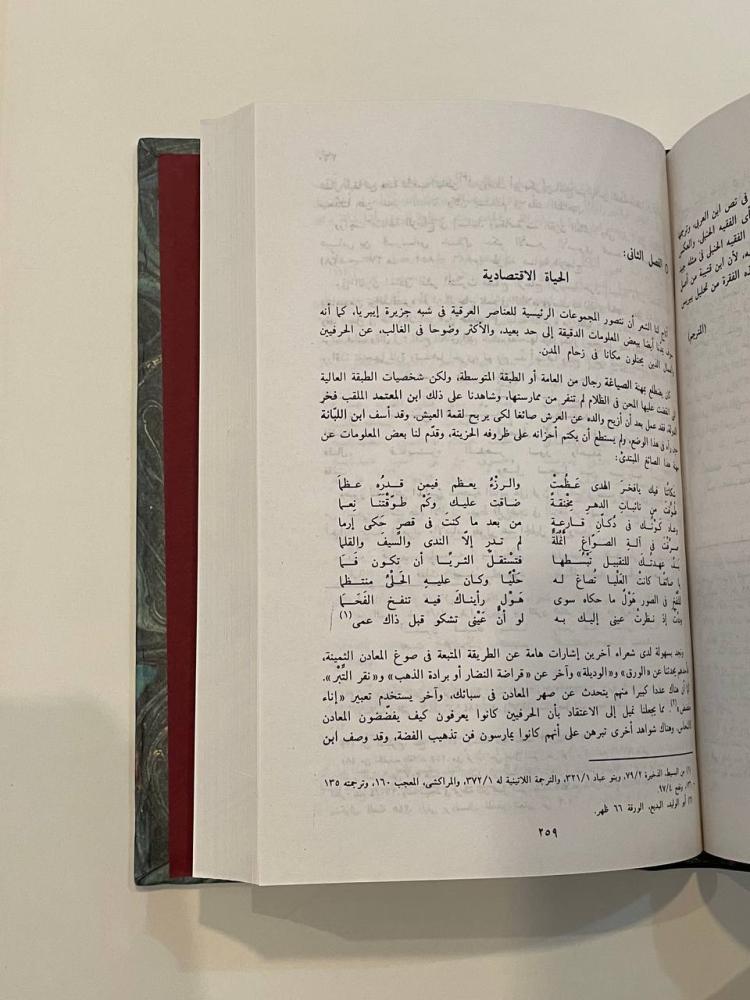 ○ الفصل الثانى:
الحياة الاقتصادية
لنا الشعر أن نتصور المجموعات الرئيسية للعناصر العرقية فى شبه جزيرة إيبريا، كما أنه
أيضا ببعض المعلومات الدقيقة إلى حد بعيد، والأكثر وضوحا فى الغالب، عن الحرفيين
الذين يحتلون مكانا فى زحام المدن.
كان يضطلع بمهنة الصياغة رجال من العامة أو الطبقة المتوسطة، ولكن شخصيات الطبقة العالية
عليها المحن فى الظلام لم تنفر من ممارستها، وشاهدنا على ذلك ابن المعتمد الملقب فخر
فقد عمل بعد أن أزيح والده عن العرش صائغا لكى يربح لقمة العيش. وقد أسف ابن اللبّانة
رآه فى هذا الوضع، ولم يستطع أن يكتم أحزانه على ظروفه الحزينة، وقدّم لنا بعض المعلومات عن
هذا الصائغ المبتدئ:
فيك يافخرَ الهدى عَظُمتْ والرزْءُ يعظم فيمن قدرُه عظمَا
طُوِّقتَ من نائباتِ الدهرِ مِخْنقةً ضاقت عليك وكَمْ طوّقْتَنا نِعما
وعاد كَونُك فى دُكانِ قارعةٍ من بعد ما كنتَ فى قصرٍ حَكى إرما
صرّفْتَ فى آلةِ الصوّاغ أنْمُلَةً لم تدرِ إلّا الندى والسيفَ والقلما
يدٌ عهدتُك للتقبيل تبْسُطها فتسْتقلُّ الثريّا أن تكون فَمَا
يا صائغا كانتْ العَلْيا تُصاغ له حَلْيًا وكان عليه الحَلْىُ منتظما
للنفْخِ فى الصور هَوْلٌ ما حكاه سوى هَولٍ رأيتُك فيه تنفخ الفَحَما
وددْتُ إذ نظرتْ عينى إليك به لو أنّ عَيْنى تشكو قبل ذاك عمى(١)
ونجد بسهولة لدى شعراء آخرين إشارات هامة عن الطريقة المتبعة فى صوغ المعادن الثمينة،
يحدثنا عن «الورق» و«الوذيلة» وآخر عن «قراضة النضار أو برادة الذهب» و«نقر التِّبْر».
هناك عددا كبيرا منهم يتحدث عن صهر المعادن فى سبائك، وآخر يستخدم تعبير «إناء
مفضض»(٢). مما يجعلنا نميل إلى الاعتقاد بأن الحرفيين كانوا يعرفون كيف يفضّضون المعادن
وهناك شواهد أخرى تبرهن على أنهم كانوا يمارسون فن تذهيب الفضة، وقد وصف ابن
(١) من البسيط، الذخيرة ٧٩/٢، وبنو عباد ٣٢١/١، والترجمة اللاتينية له ٣٧٢/١، والمراكشى، المعجب ١٦٠، وترجمته ١٣٥
ونفح ٩٧/٤
(٢) أبو الوليد، البديع، الورقة ٦٦ ظهر.
٢٥٩
فى نص ابن العربى، وترجم
الفقيه الحنبلى، والعكس
الفقيه الحنبلى فى مثله
لأن ابن قتيبة من أصل
هذه الفقرة من تحليل بيريس
(المترجم)